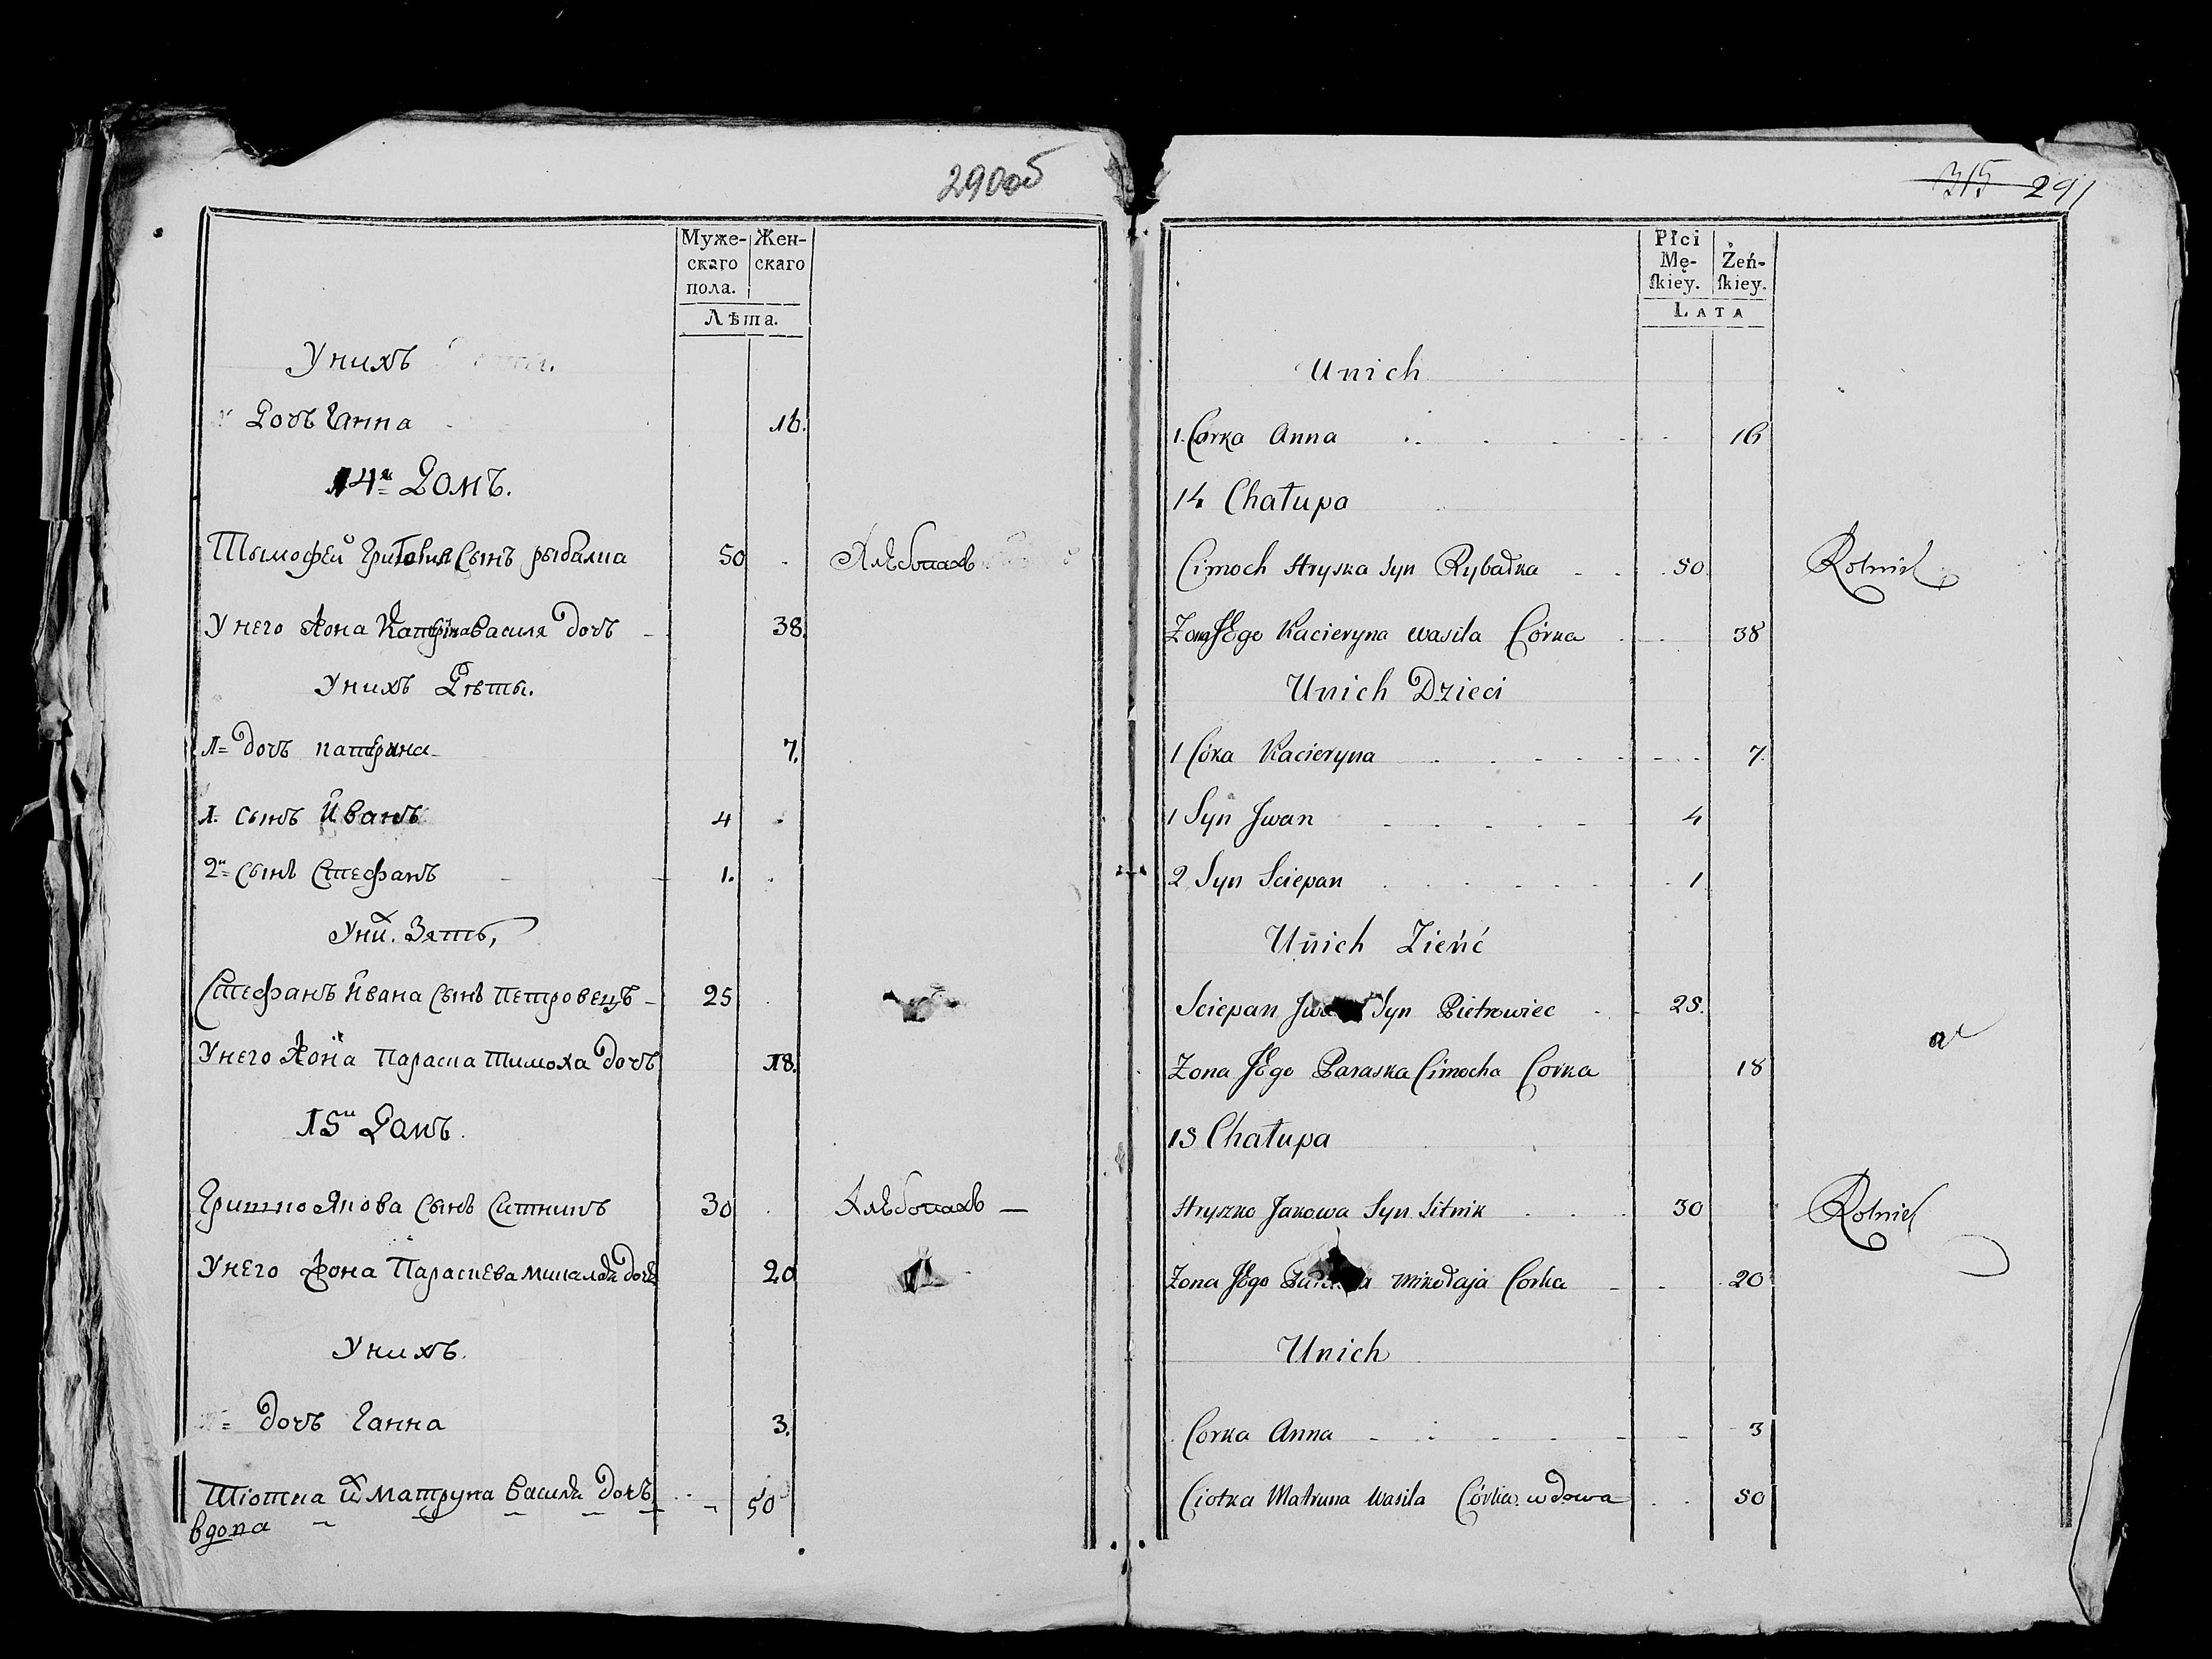 290об
Муже-
скаго
пола.
Жен-
скаго
Лѣта.
Унихъ
Дочь Ганна 16.
14й Домъ.
Тымофей Сынъ рыбалка 50 Хлѣбопахъ
У него Жона Василя дочь 38.
Унихъ Дѣты.
1= дочь катрина 7.
1. сынъ Иванъ 4
2й= Сынъ Стефанъ 1.
Уних. Зять,
Стефанъ Ивана Сынъ Петровецъ 25
У него Жона Параска Тимоха дочь 18.
15й Домъ.
Гришко Якова Сынъ Ситникъ 30 Хлѣбопахъ
У него Жона дочь 20
Унихъ.
дочь Ганна 3.
Тіотка их Матруна Василя дочь 50
вдова
315 291
Płci
Mę-
ſkiey.
Żeń-
ſkiey.
LATA
Unich
1. Corka Anna 16
14 Chałupa
Cimoch Hryska Syn Rybałka 50 Rolnik
Zona JEgo Kacieryna wasila Córka 38
Unich Dzieci
1 Córka Kacieryna 7.
1 Syn Jwan 4
2 Syn Sciepan 1
Unich Zięńć
Sciepan Syn Pietrowiec 25.
Zona JEgo Paraska Cimocha Corka 18
15 Chałupa
Hryszko Jakowa Syn Sitnik 30 Rolnik
Zona JEgo Mikołaja Corka 20
Unich
Corka Anna 3
Ciotka Matruna Wasila Córka wdowa 50